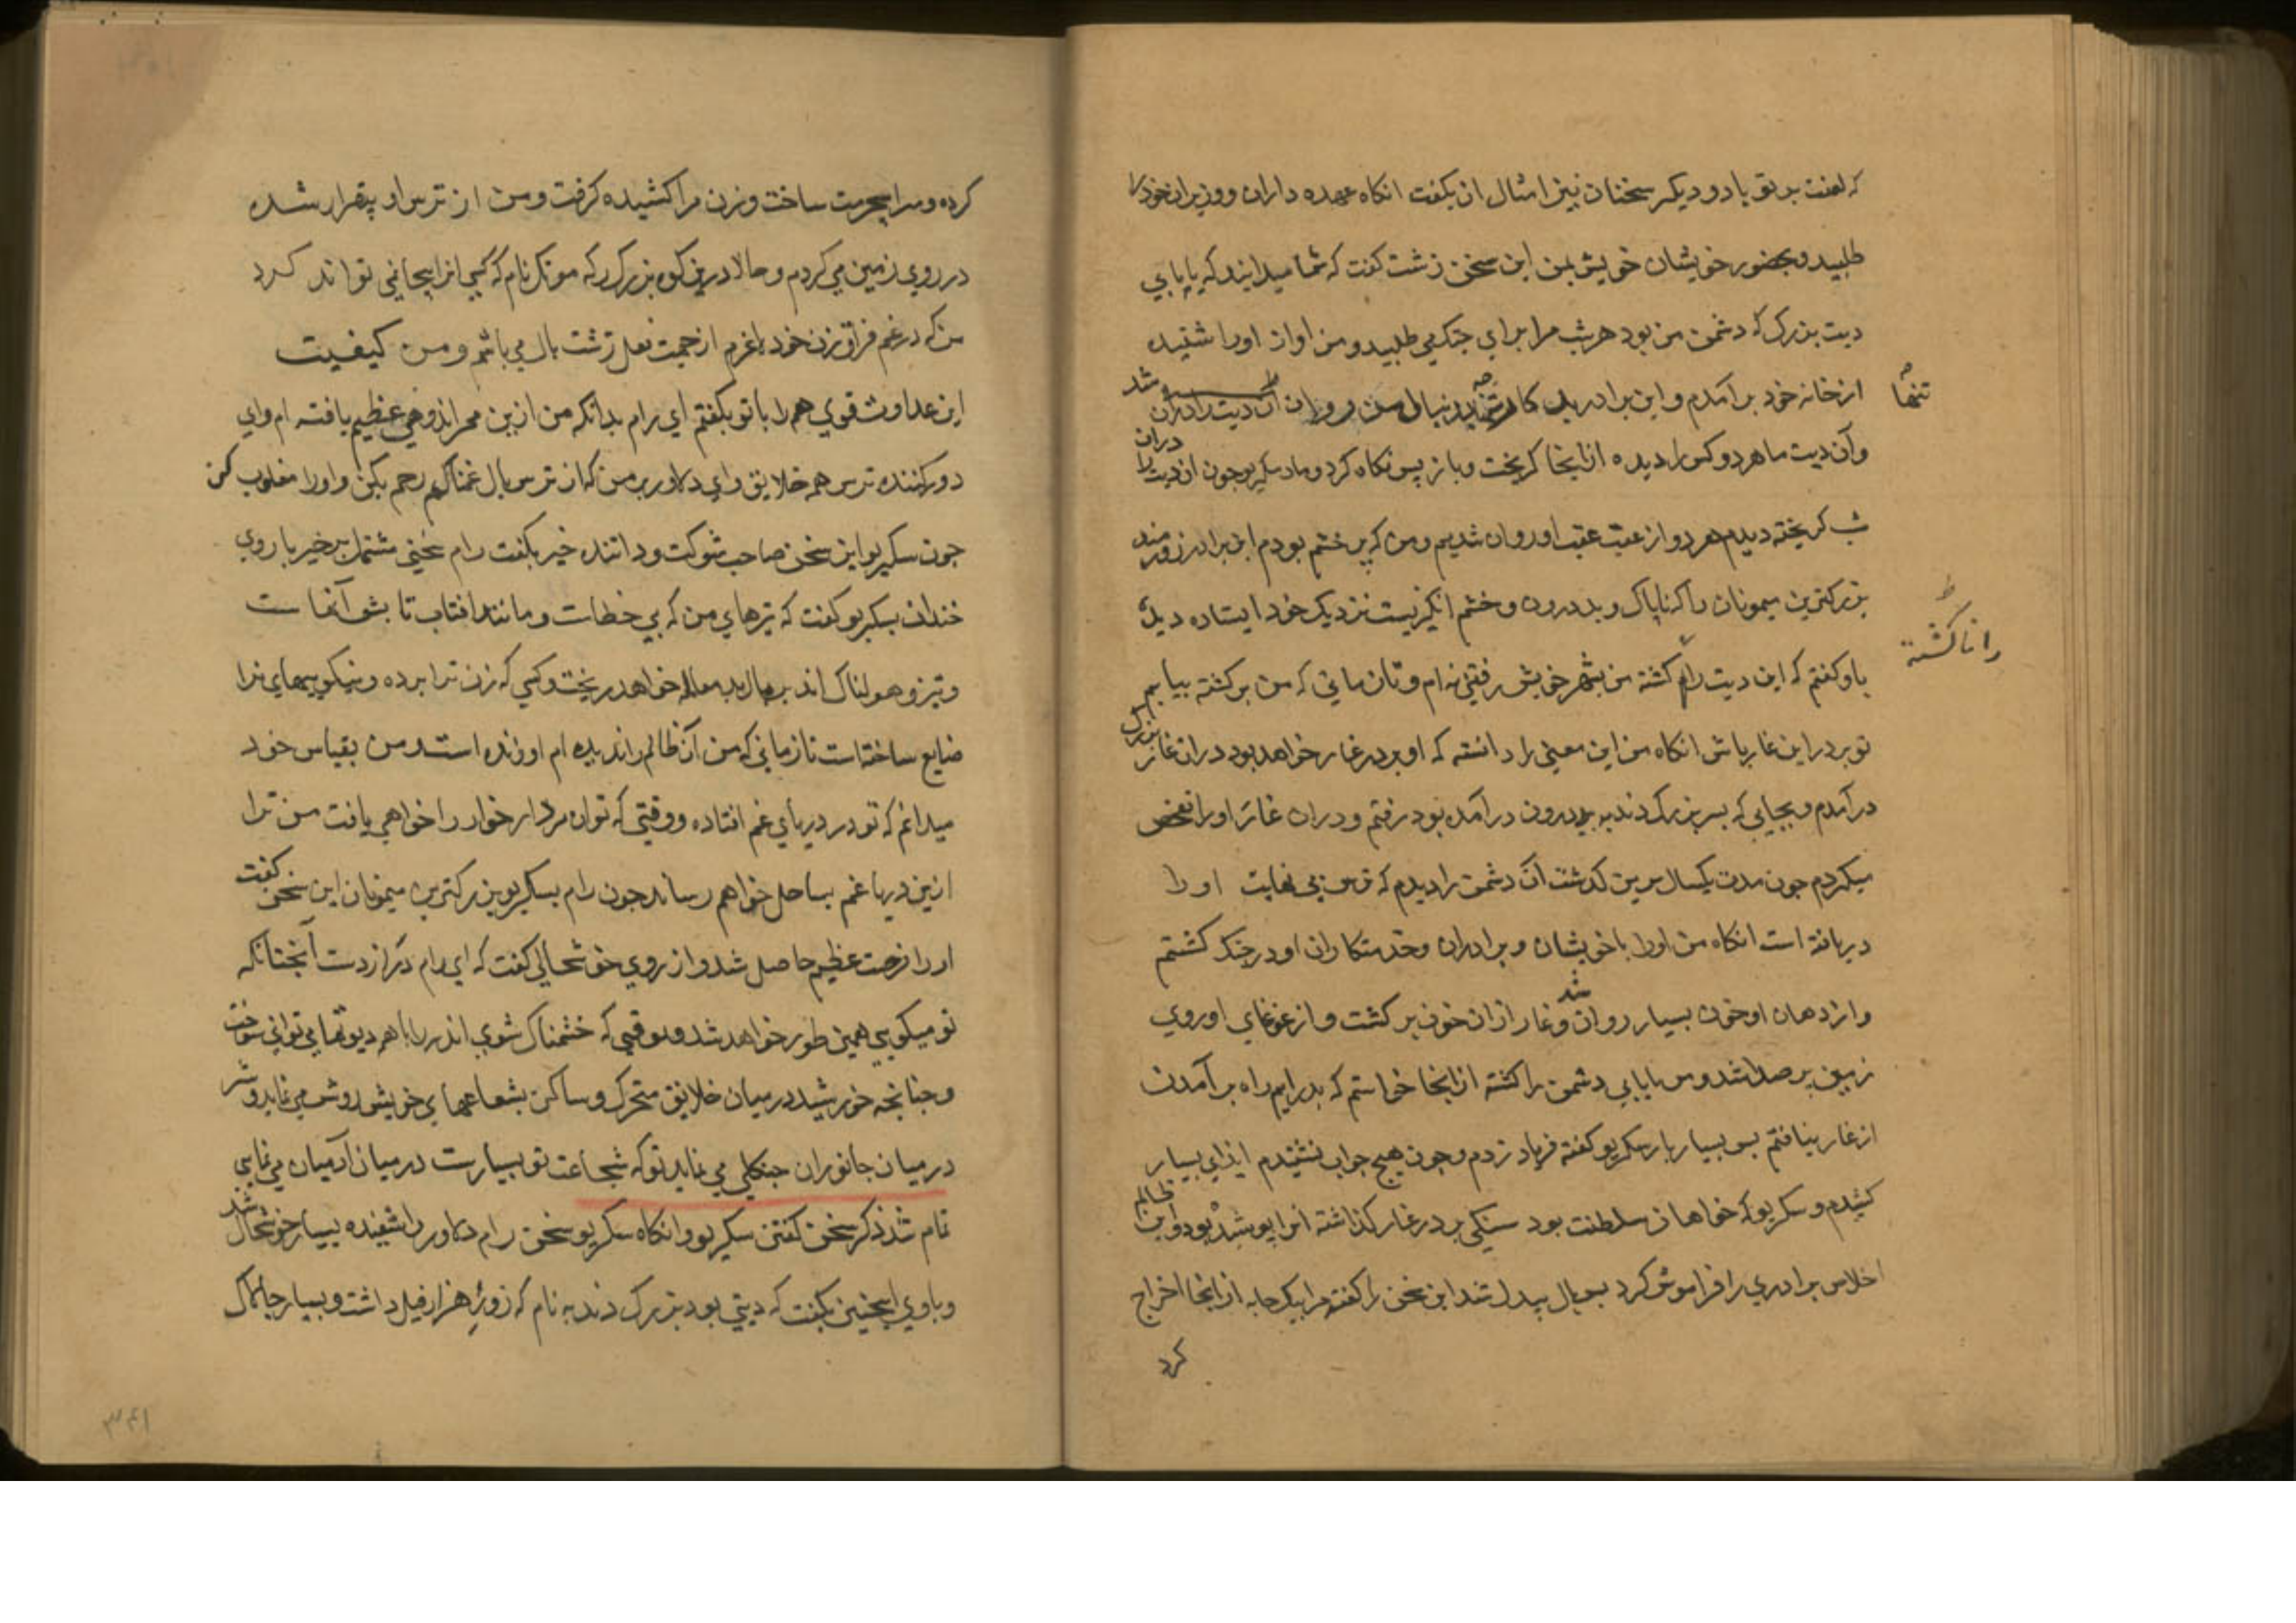 که لعنت بر تو باد و دیکر سخنان نیز امثال ان بکفت انکاه عهده داران و وزیران خود را
طلبید و بحضور خویشان خویش بمن این سخن زشت کفت که شما میدانید که یاپابي
دیت بزرک که دشمن من بود هر شب مرا برای جنک می طلبید و من اواز اورا شنیده
تنها
از خانه خود بر آمدم و این برادر بد کار دنبال من روان شد ان دیت را دران
وآن دیت ما هر دو کس را دیده از انجا کریخت و باز پس نکاه کرد و ما و سکریو چون ان دیت را دران
شب کریخته دیدم هر دو از عقب عقب او روان شدیم و من که پر خشم بودم این برادر زورمند
بزرکترین میمونان را که ناپاک و بد درون و خشم انکیز است نزدیک خود ایستاده دیده
را ناکشته
باو کفتم که این دیت را کشته من بشهر خویش رفتنی نه ام و تا زمانی که من برکشته بیایم
تو بر در این غار باش انکاه من این معنی را دانسته که او بر در غار خواهد بود دران غار بزرک
در آمدم و بجایی که پسر بزرک دندبه بدرون در آمده بود رفتم و دران غار اورا تفحص
میکردم چون مدت یکسال برین کذشت آن دشمن را دیدم که ترس بی نهایت اورا
دریافته است انکاه من اورا با خویشان و برادران و خدمتکاران او در جنک کشتم
و از دهان او خون بسیار روان شد و غار ازان خون پر کشت و از غوغای او روي
زمین پر صدا شد و من یاپابي دشمن را کشته از انجا خواستم که بدر ایم راه بر آمدن
از غار نیافتم پس بسیار بار سکریو کفته فریاد زدم و چون هیچ جواب نشنیدم ایذای بسیار
کشیدم و سکریو که خواهان سلطنت بود سنکی بر در غار کذاشته انرا پوشیده بود و این ظالم
اخلاص برادري را فراموش کرد پس بال بیدانند این سخن را کفته مرا بیک جامه از انجا اخراج
کرد
کرده و مرا بیحرمت ساخت و زن مرا کشیده کرفت و من از ترس او بیقرار شده
در روي زمین می کردم و حالا درین کوه بزرک رکه مونک نام که کسی انرا بیجا نمی تواند کرد
من که در غم فراق زن خود لاغرم از جهت فعل زشت بال می باشم و من کیفیت
این عداوت قوي همه را با تو بکفتم ای رام بدانکه من ازین ممر اندوهی عظیم یافته ام و ای
دور کننده ترس همه خلایق و ای دلاور بر من که از ترس بال غمناکم رحم بکن و اورا مغلوب کن
چون سکریو این سخن صاحب شوکت و داننده خیر بکفت رام سخنی مشتمل بر خیر با روي
خندان بسکریو کفت که تیرهای من که بی خطاست و مانند افتاب تابش آنهاست
و تیز و هولناک اند بر بال بد معامله خواهد ریخت و کسی که زن ترا برده و نیکوییهای ترا
ضایع ساخته است تا زمانی که من آن ظالم را ندیده ام او زنده است و من بقیاس خود
میدانم که تو در دریای غم افتاده و وقتی که تو ان مردار خوار را خواهی یافت من ترا
ازین دریا غم بساحل خواهم رساند چون رام بسکریو بزرکترین میمونان این سخن کفت
اورا فرحت عظیم حاصل شد و از روي خوشحالی کفت که ای رام دکر از دست آنچنانکه
تو میکویی همین طور خواهد شد و بوقتی که خشمناک شوي اندر را با هر دیوتها می توانی سوخت
و چنانچه خورشید در میان خلایق متحرک و ساکن بشعاعهای خویش روشن می نماید و شیر
در میان جانوران جنکلي می نماید تو که شجاعت تو بسیارست درمیان ادمیان می نمایی
تمام شد ذکر سخن کفتن سکریو و انکاه سکریو سخن رام دلاور را شنیده بسیار خوشحال شد
و باوي اینچنین بکفت که دیتی بود بزرک دندبه نام که زور هزار فیل داشت و بسیار چالاک
۳۴۱